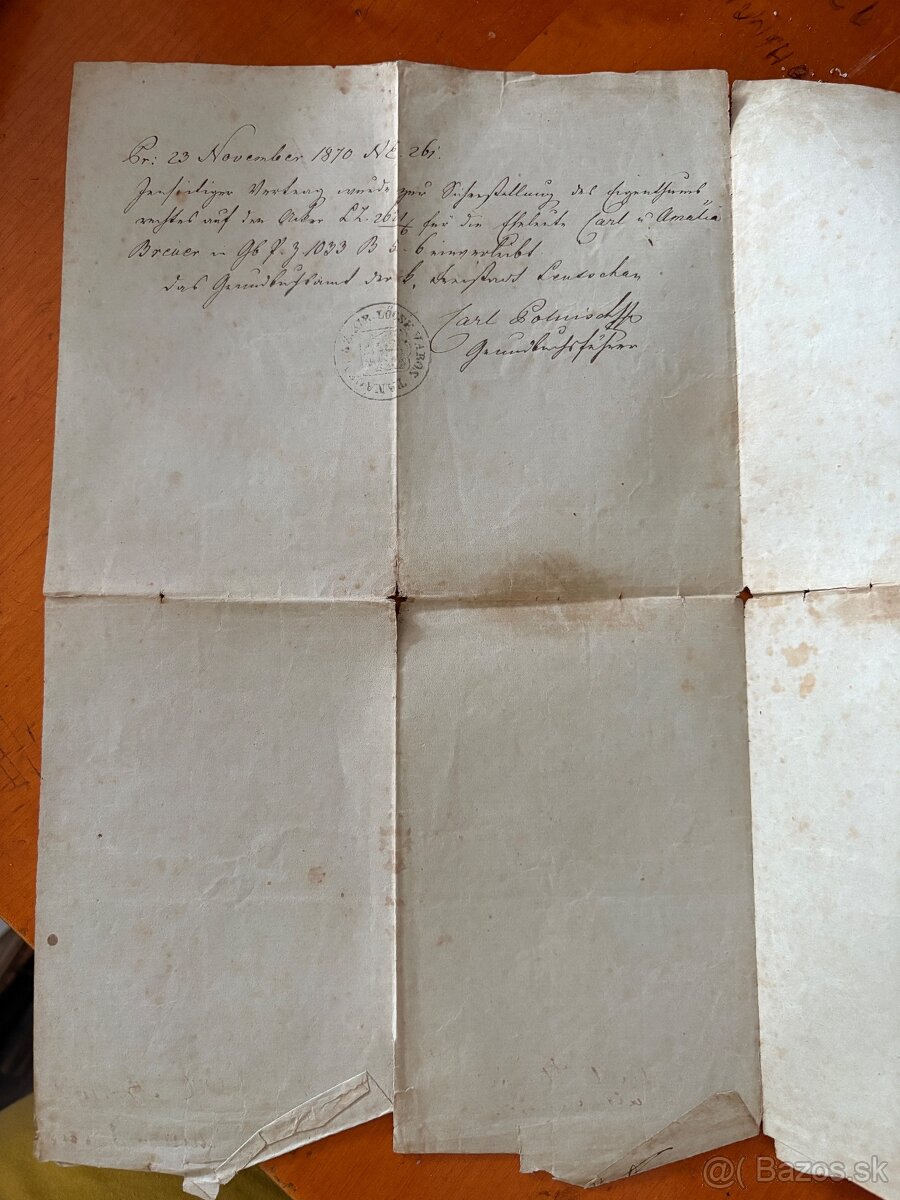 Pr: 23 November 1870 Nr 261.
Jenseitiger Vertrag wurde zur Sicherstellung des Eigenthums
rechtes auf den Acker für die Eheleute Carl u Amalia
Breuer in Gb P. z 1033 B 5-6 einverleibt
Das Grundbuchsamt der k. Freistadt Leutschau
Carl Polnisch
Grundbuchsführer
LŐCSE VÁROS TANÁCSA
@( Bazos.sk